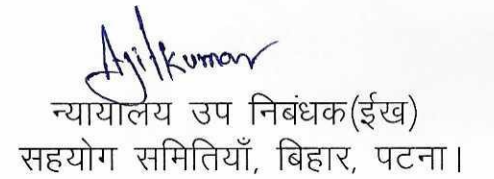 Ajitkumar
न्यायालय उप निबंधक(ईख)
सहयोग समितियाँ, बिहार, पटना।